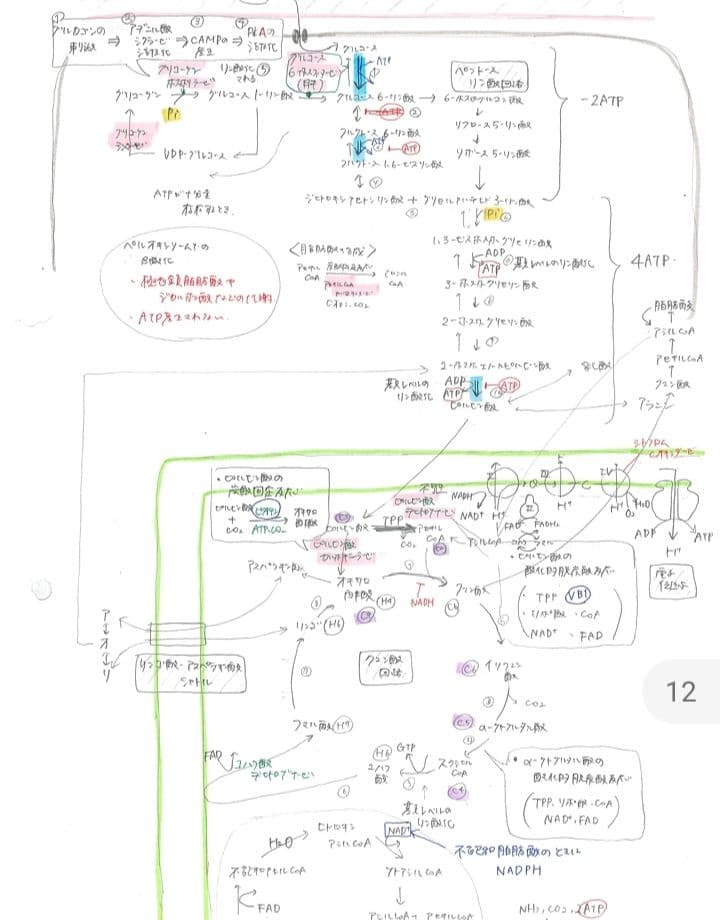 ① ② ③ ④
グルカゴンの
取り込み
アデニル酸
シクラーゼ
活性化
CAMPの
産生
PKAの
活性化
グルコース
ATP
グリコーゲン
ホスホリラーゼ
リン酸化 ⑤
される
グルコース
6-ホスファターゼ
(肝)
ペントース
リン酸回路
グリコーゲン
グルコース 1-リン酸
グルコース 6-リン酸
6-ホスホグルコン酸
-2ATP
Pi
ATP ②
グリコーゲン
シンターゼ
フルクトース 6-リン酸
リブロース 5-リン酸
ATP
UDP-グルコース
フルクトース 1,6-ビスリン酸
リボース 5-リン酸
④
ATPが十分量
存在するとき.
ジヒドロキシアセトンリン酸 + グリセルアルデヒド 3-リン酸
⑤
Pi ⑥
ペルオキシソームでの
β酸化
・極長鎖脂肪酸や
ジカルボン酸などの代謝
・ATP産生されない.
<脂肪酸合成>
アセチル
CoA
アセチルCoA
カルボキシラーゼ
ビオチン, CO2
マロニル
CoA
1,3-ビスホスホグリセリン酸
ADP
ATP
基質レベルのリン酸化
3-ホスホグリセリン酸
2-ホスホグリセリン酸
4ATP
脂肪酸
アシルCoA
アセチルCoA
クエン酸
アラニン
乳酸
2-ホスホエノールピルビン酸
基質レベルの
リン酸化
ADP
ATP
ATP
ピルビン酸
シトクロム
Cオキシダーゼ
・ピルビン酸の
炭酸固定反応
ピルビン酸
+
CO2
ビオチン
ATP, CO2
オキサロ
酢酸
不可逆
ピルビン酸
デヒドロゲナーゼ
TPP
CO2
アセチル
CoA
ピルビン酸
カルボキシラーゼ
NADH
NAD+
H+
FAD
FADH2
Q
C
H+
H+
O2
H2O
ADP
ATP
H+
電子
伝達系
アシルCoA
アスパラギン酸
オキサロ
酢酸
C4
H4
クエン酸
C6
NADH
・ピルビン酸の
酸化的脱炭酸反応
・TPP VB1
・リポ酸・CoA
NAD+ ・FAD
ア
オ
リ
リンゴ酸 H6
リンゴ酸-アスパラギン酸
シャトル
クエン酸
回路
C6
イソクエン
酸
CO2
C5
α-ケトグルタル酸
フマル酸 H4
FAD
コハク酸
デヒドロゲナーゼ
H6
コハク
酸
GTP
スクシニル
CoA
C4
基質レベルの
リン酸化
・α-ケトグルタル酸の
酸化的脱炭酸反応
(TPP, リポ酸, CoA
NAD+, FAD)
12
H2O
ヒドロキシ
アシルCoA
NAD+
不飽和脂肪酸のときに
NADPH.
不飽和アシルCoA
ケトアシルCoA
FAD
アシルCoA+アセチルCoA
NH3, CO2, 2ATP